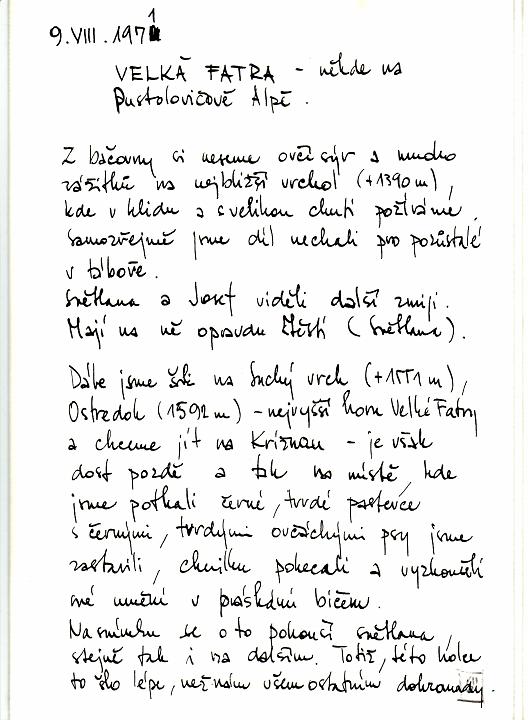 9.VIII.1971
VELKÁ FATRA - někde na
Pustolovčově Alpě.
Z bačovny si neseme ovčí sýr a mnoho
zážitků na nejbližší vrchol (+1390 m),
kde v klidu a s velikou chutí požíváme.
Samozřejmě jsme díl nechali pro pozůstalé
v táboře.
Světlana a Josef viděli další zmiji.
Mají na ně opravdu štěstí (Světlana).
Dále jsme šli na Suchý vrch (+1551 m),
Ostredok (1592 m) - nejvyšší horu Velké Fatry
a chceme jít na Križnou - je však
dost pozdě a tak na místě, kde
jsme potkali černé, tvrdé pastevce
s černými, tvrdými ovčáckými psy jsme
zastavili, chvilku pokecali a vyzkoušeli
své umění v práskání bičem.
Na snímku se o to pokouší Světlana,
stejně tak i na dalším. Totiž, této holce
to šlo lépe, než nám všem ostatním dohromady.